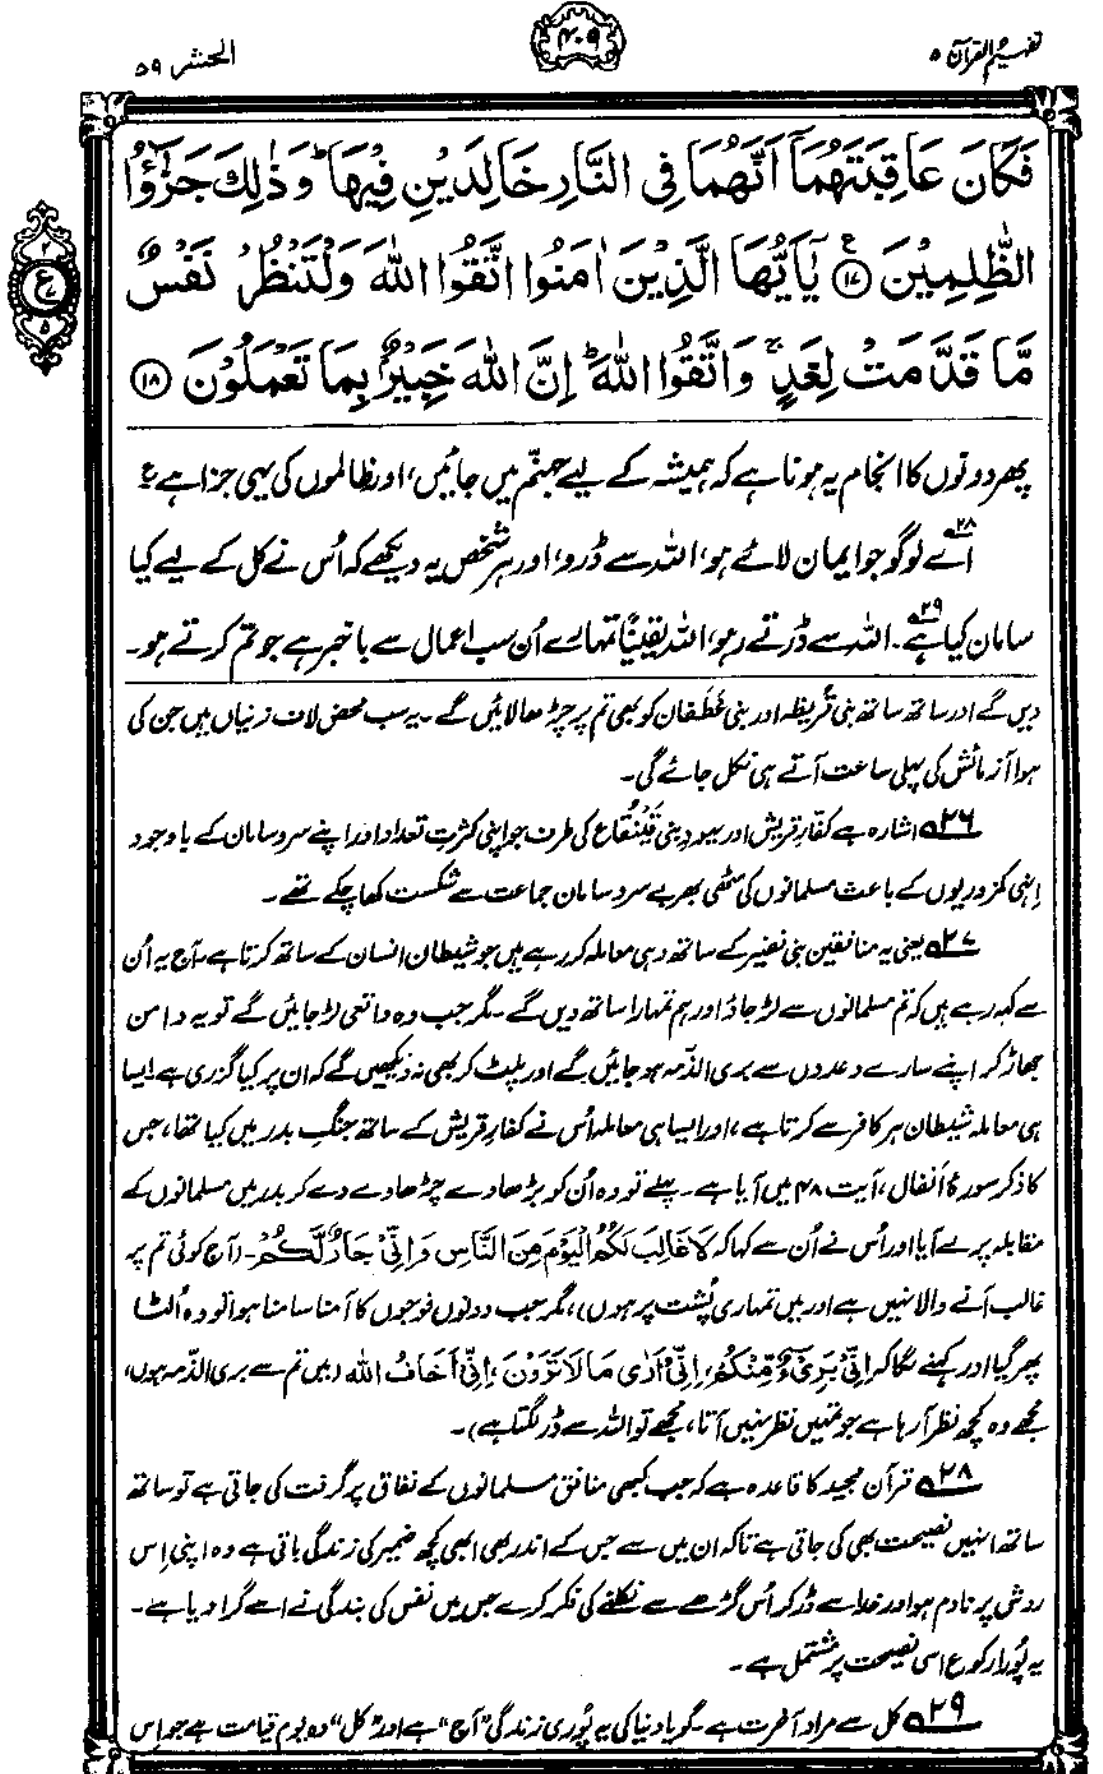 تفہیم القرآن ۵
۴۰۹
الحشر ۵۹
فَكَانَ عَاقِبَتَهُمَآ اَنَّهُمَا فِي النَّارِ خَالِدَيْنِ فِيْهَا ؕ وَذٰلِكَ جَزٰٓؤُا
الظّٰلِمِيْنَ ۱۷ ع يٰٓاَيُّهَا الَّذِيْنَ اٰمَنُوا اتَّقُوا اللّٰهَ وَلْتَنْظُرْ نَفْسٌ
مَّا قَدَّمَتْ لِغَدٍ ۚ وَاتَّقُوا اللّٰهَ ؕ اِنَّ اللّٰهَ خَبِيْرٌۢ بِمَا تَعْمَلُوْنَ ۱۸
۲
ع
۵
پھر دونوں کا انجام یہ ہونا ہے کہ ہمیشہ کے لیے جہنّم میں جائیں، اور ظالموں کی یہی جزا ہے ع
۲۸؎ اَے لوگو جو ایمان لائے ہو، اللہ سے ڈرو، اور ہر شخص یہ دیکھے کہ اُس نے کل کے لیے کیا
سامان کیا ہے۲۹؎۔ اللہ سے ڈرتے رہو، اللہ یقینًا تمہارے اُن سب اعمال سے باخبر ہے جو تم کرتے ہو۔
دیں گے اور ساتھ ساتھ بنی قُریظہ اور بنی غَطَفان کو بھی تم پر چڑھا لائیں گے۔ یہ سب محض لاف زنیاں ہیں جن کی
ہوا آزمائش کی پہلی ساعت آتے ہی نکل جائے گی۔
۲۶؎ اشارہ ہے کفّارِ قریش اور یہودِ بنی قَینُقاع کی طرف جو اپنی کثرتِ تعداد اور اپنے سروسامان کے باوجود
اِنہی کمزوریوں کے باعث مسلمانوں کی مٹھی بھر بے سروسامان جماعت سے شکست کھا چکے تھے۔
۲۷؎ یعنی یہ منافقین بنی نضیر کے ساتھ وہی معاملہ کر رہے ہیں جو شیطان انسان کے ساتھ کرتا ہے۔ آج یہ اُن
سے کہہ رہے ہیں کہ تم مسلمانوں سے لڑ جاؤ اور ہم تمہارا ساتھ دیں گے۔ مگر جب وہ واقعی لڑ جائیں گے تو یہ دامن
جھاڑ کر اپنے سارے وعدوں سے بری الذّمہ ہو جائیں گے اور پلٹ کر بھی نہ دیکھیں گے کہ ان پر کیا گزری ہے۔ ایسا
ہی معاملہ شیطان ہر کافر سے کرتا ہے، اور ایسا ہی معاملہ اُس نے کفارِ قریش کے ساتھ جنگِ بدر میں کیا تھا، جس
کا ذکر سورۂ اَنفال، آیت ۴۸ میں آیا ہے۔ پہلے تو وہ اُن کو بڑھاوے چڑھاوے دے کر بدر میں مسلمانوں کے
مقابلہ پر لے آیا اور اُس نے اُن سے کہا کہ لَا غَالِبَ لَكُمُ الْيَوْمَ مِنَ النَّاسِ وَاِنِّيْ جَارٌ لَّكُمْ۔ (آج کوئی تم پر
غالب آنے والا نہیں ہے اور میں تمہاری پُشت پر ہوں)، مگر جب دونوں فوجوں کا آمنا سامنا ہوا تو وہ اُلٹا
پھر گیا اور کہنے لگا کہ اِنِّيْ بَرِيْٓءٌ مِّنْكُمْ، اِنِّيْٓ اَرٰى مَا لَا تَرَوْنَ، اِنِّيْٓ اَخَافُ اللّٰه (میں تم سے بری الذّمہ ہوں،
مجھے وہ کچھ نظر آ رہا ہے جو تمہیں نظر نہیں آتا، مجھے تو اللہ سے ڈر لگتا ہے)۔
۲۸؎ قرآن مجید کا قاعدہ ہے کہ جب کبھی منافق مسلمانوں کے نفاق پر گرفت کی جاتی ہے تو ساتھ
ساتھ انہیں نصیحت بھی کی جاتی ہے تاکہ ان میں سے جس کے اندر بھی ابھی کچھ ضمیر کی زندگی باقی ہے وہ اپنی اِس
روش پر نادم ہو اور خدا سے ڈر کر اُس گڑھے سے نکلنے کی فکر کرے جس میں نفس کی بندگی نے اسے گرا دیا ہے۔
یہ پُورا رکوع اسی نصیحت پر مشتمل ہے۔
۲۹؎ کل سے مراد آخرت ہے۔ گویا دنیا کی یہ پُوری زندگی "آج" ہے اور "کل" وہ یوم قیامت ہے جو اِس